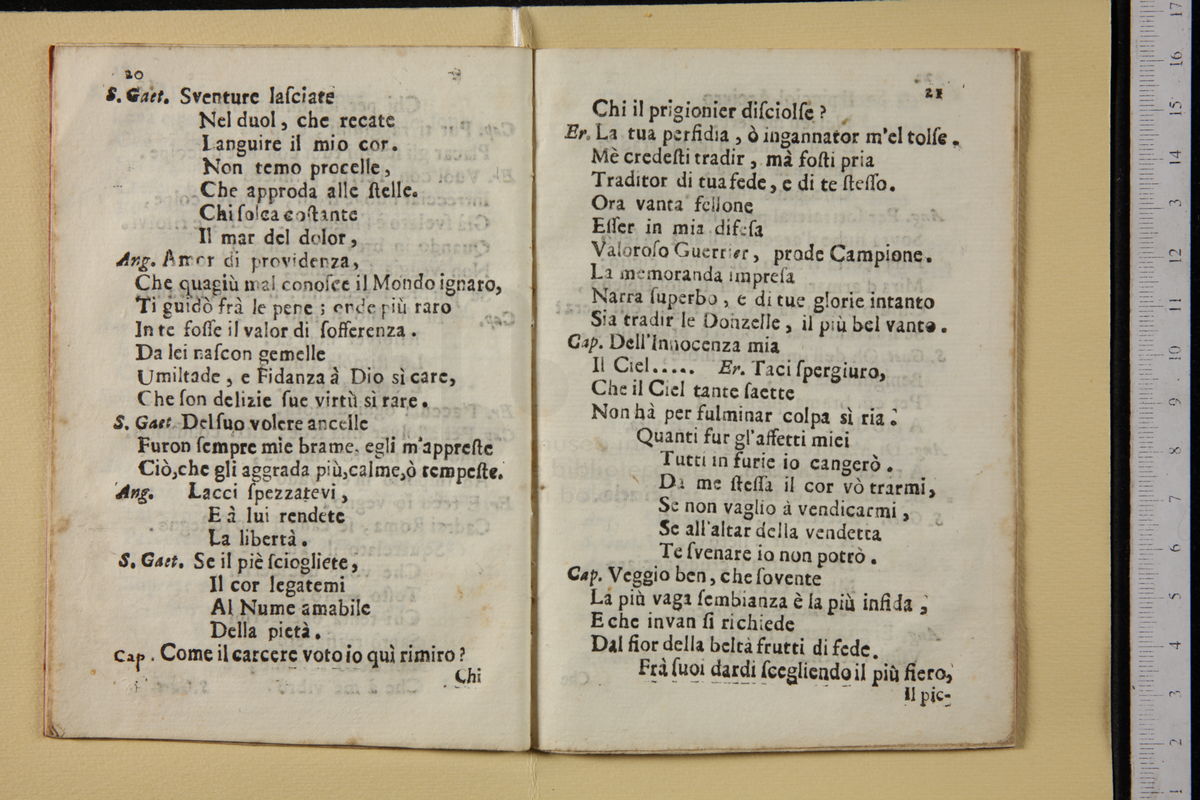 20
S. Gaet. Sventure laſciate
Nel duol, che recate
Languire il mio cor.
Non temo procelle,
Che approda alle ſtelle.
Chi ſolca coſtante
Il mar del dolor,
Ang. Amor di providenza,
Che quagiù mal conoſce il Mondo ignaro,
Ti guidò frà le pene; onde più raro
In te foſſe il valor di ſofferenza.
Da lei naſcon gemelle
Umiltade, e Fidanza à Dio sì care,
Che ſon delizie ſue virtù sì rare.
S. Gaet Del ſuo volere ancelle
Furon ſempre mie brame, egli m'appreſte
Ciò, che gli aggrada più, calme, ò tempeſte.
Ang. Lacci ſpezzatevi,
E à lui rendete
La libertà.
S. Gaet. Se il piè ſciogliete,
Il cor legatemi
Al Nume amabile
Della pietà.
Cap. Come il carcere voto io quì rimiro?
Chi
21
Chi il prigionier diſciolſe?
Er. La tua perfidia, ò ingannator m'el tolſe.
Mè credeſti tradir, mà foſti pria
Traditor di tua fede, e di te ſteſſo.
Ora vanta fellone
Eſſer in mia difeſa
Valoroſo Guerrier, prode Campione.
La memoranda impreſa
Narra ſuperbo, e di tue glorie intanto
Sia tradir le Donzelle, il più bel vanto.
Cap. Dell'Innocenza mia
Il Ciel..... Er. Taci ſpergiuro,
Che il Ciel tante ſaette
Non hà per fulminar colpa sì ria.
Quanti fur gl'affetti miei
Tutti in furie io cangerò.
Da me ſteſſa il cor vò trarmi,
Se non vaglio à vendicarmi,
Se all'altar della vendetta
Te ſvenare io non potrò.
Cap. Veggio ben, che ſovente
La più vaga ſembianza è la più infida;
E che invan ſi richiede
Dal fior della beltà frutti di fede.
Frà ſuoi dardi ſcegliendo il più fiero,
Il pic-
17
16
15
14
3
12
11
10
9
8
7
6
5
4
3
2
1